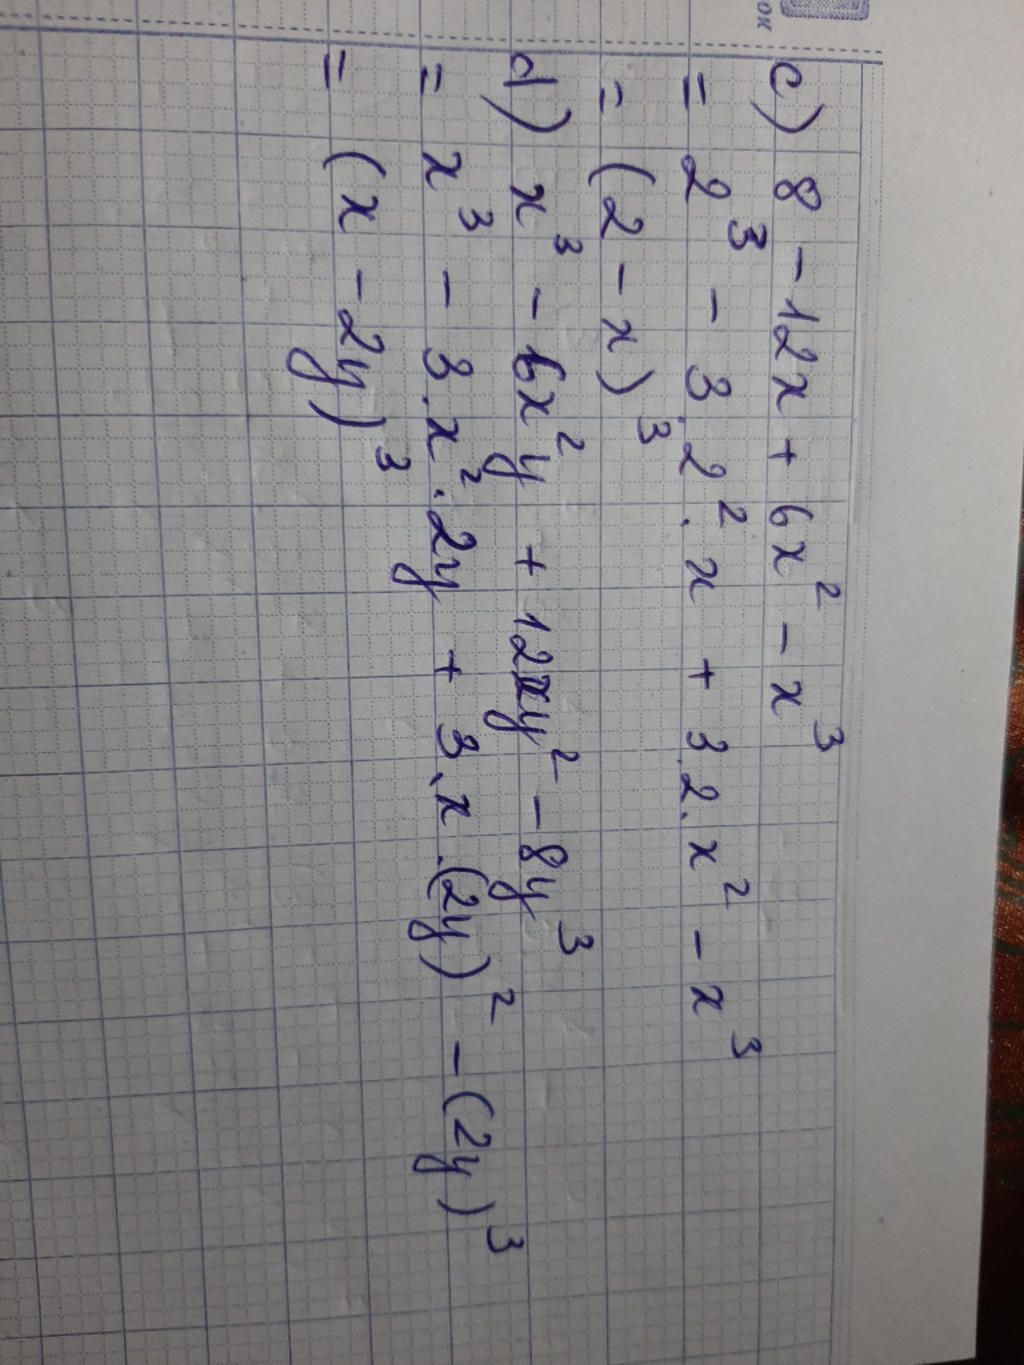 ок
c) 8 - 12x + 6x² - x³
= 2³ - 3.2².x + 3.2.x² - x³
= (2 - x)³
d) x³ - 6x²y + 12xy² - 8y³
= x³ - 3.x².2y + 3.x.(2y)² - (2y)³
= (x - 2y)³